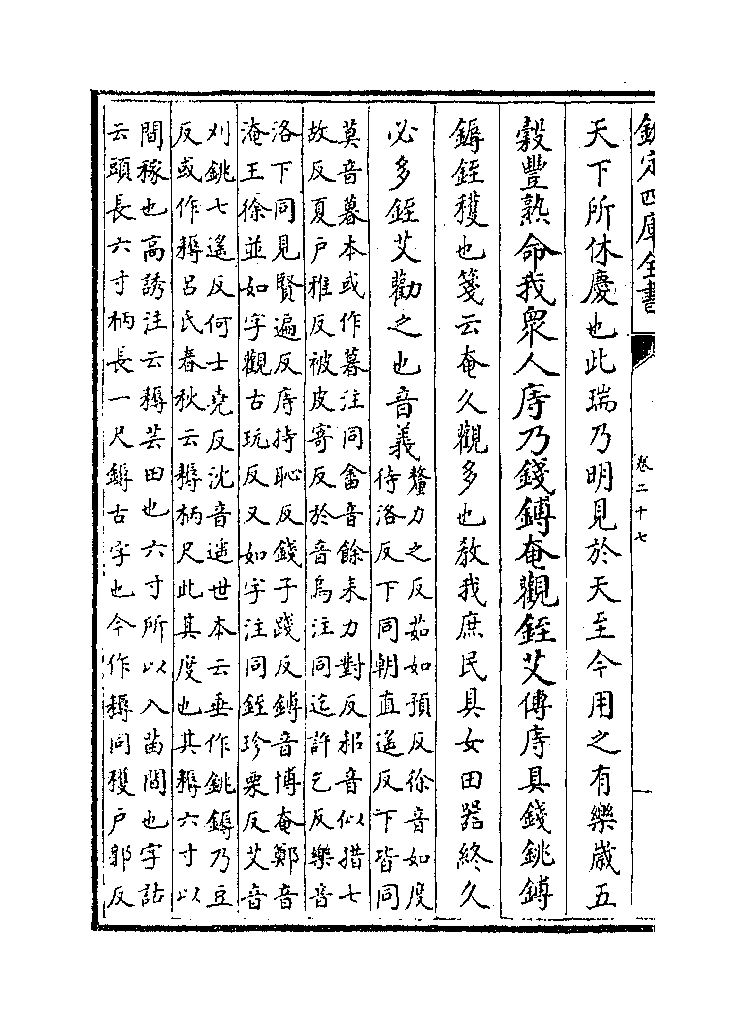 欽定四庫全書
卷二十七
天下所休慶也此瑞乃明見於天至今用之有樂歲五
穀豐熟命我衆人庤乃錢鎛奄觀銍艾傳庤具錢銚鎛
鎒銍穫也箋云奄久觀多也敎我庶民具女田器終久
必多銍艾勸之也音義
釐力之反茹如預反徐音如度
待洛反下同朝直遥反下皆同
莫音暮本或作暮注同畬音餘耒力對反耜音似措七
故反夏戶雅反被皮寄反於音烏注同迄許乞反樂音
洛下同見賢遍反庤持恥反錢子踐反鎛音博奄鄭音
淹王徐並如字觀古玩反又如字注同銍珍栗反艾音
刈銚七遥反何士堯反沈音遥世本云垂作銚鎒乃豆
反或作耨呂氏春秋云耨柄尺此其度也其耨六寸以
間稼也高誘注云耨芸田也六寸所以入苗間也字詁
云頭長六寸柄長一尺鎒古字也今作耨同穫戶郭反